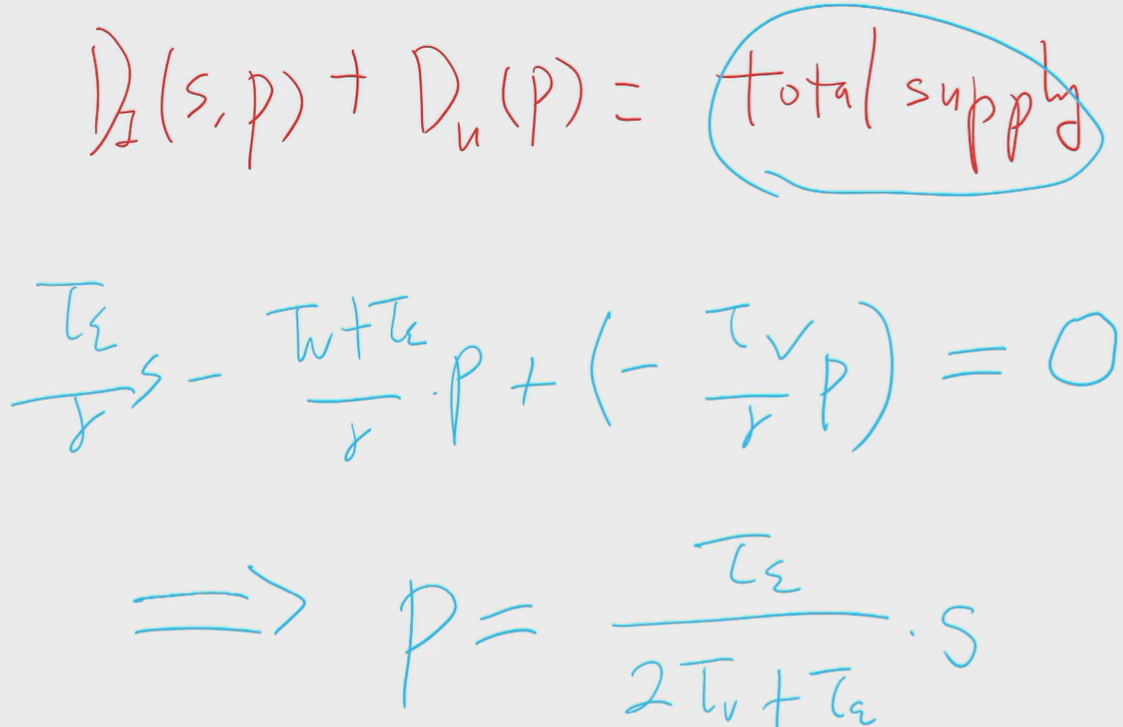 D_I(s,p) + D_u(p) = total supply
τ_ε/γ s - τ_v+τ_ε/γ · p + (- τ_v/γ p) = 0
⟹ p = τ_ε/2τ_v+τ_ε · s